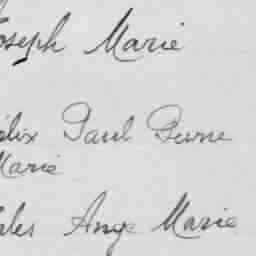 Joseph Marie
Félix Paul Pierre
Marie
Jules Ange Marie